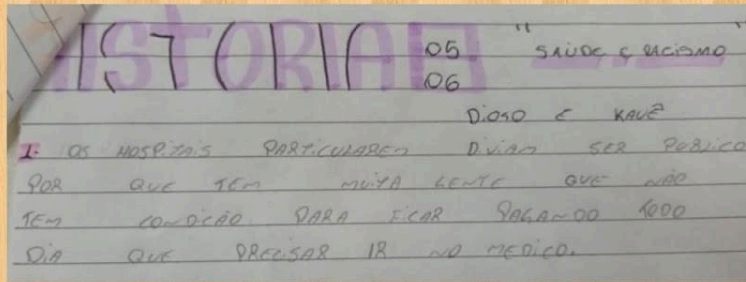 HISTORIA 05 "SAÚDE E RACISMO"
06
DIOGO E KAUÊ
1- OS HOSPITAIS PARTICULARES DIVIAM SER PUBLICO
POR QUE TEM MUITA GENTE QUE NÃO
TEM CONDICÃO PARA FICAR PAGANDO TODO
DIA QUE PRECISAR IR NO MEDICO.